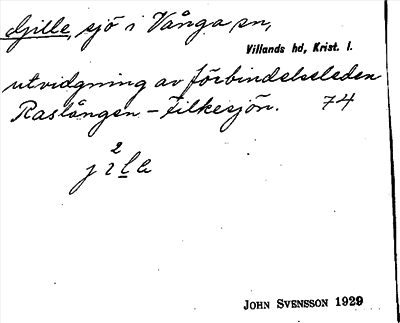 Gille, sjö i Vånga sn,
Villands hd, Krist. l.
utvidgning av förbindelseleden
Raslången – Filkesjön. 74
2
John Svensson 1929